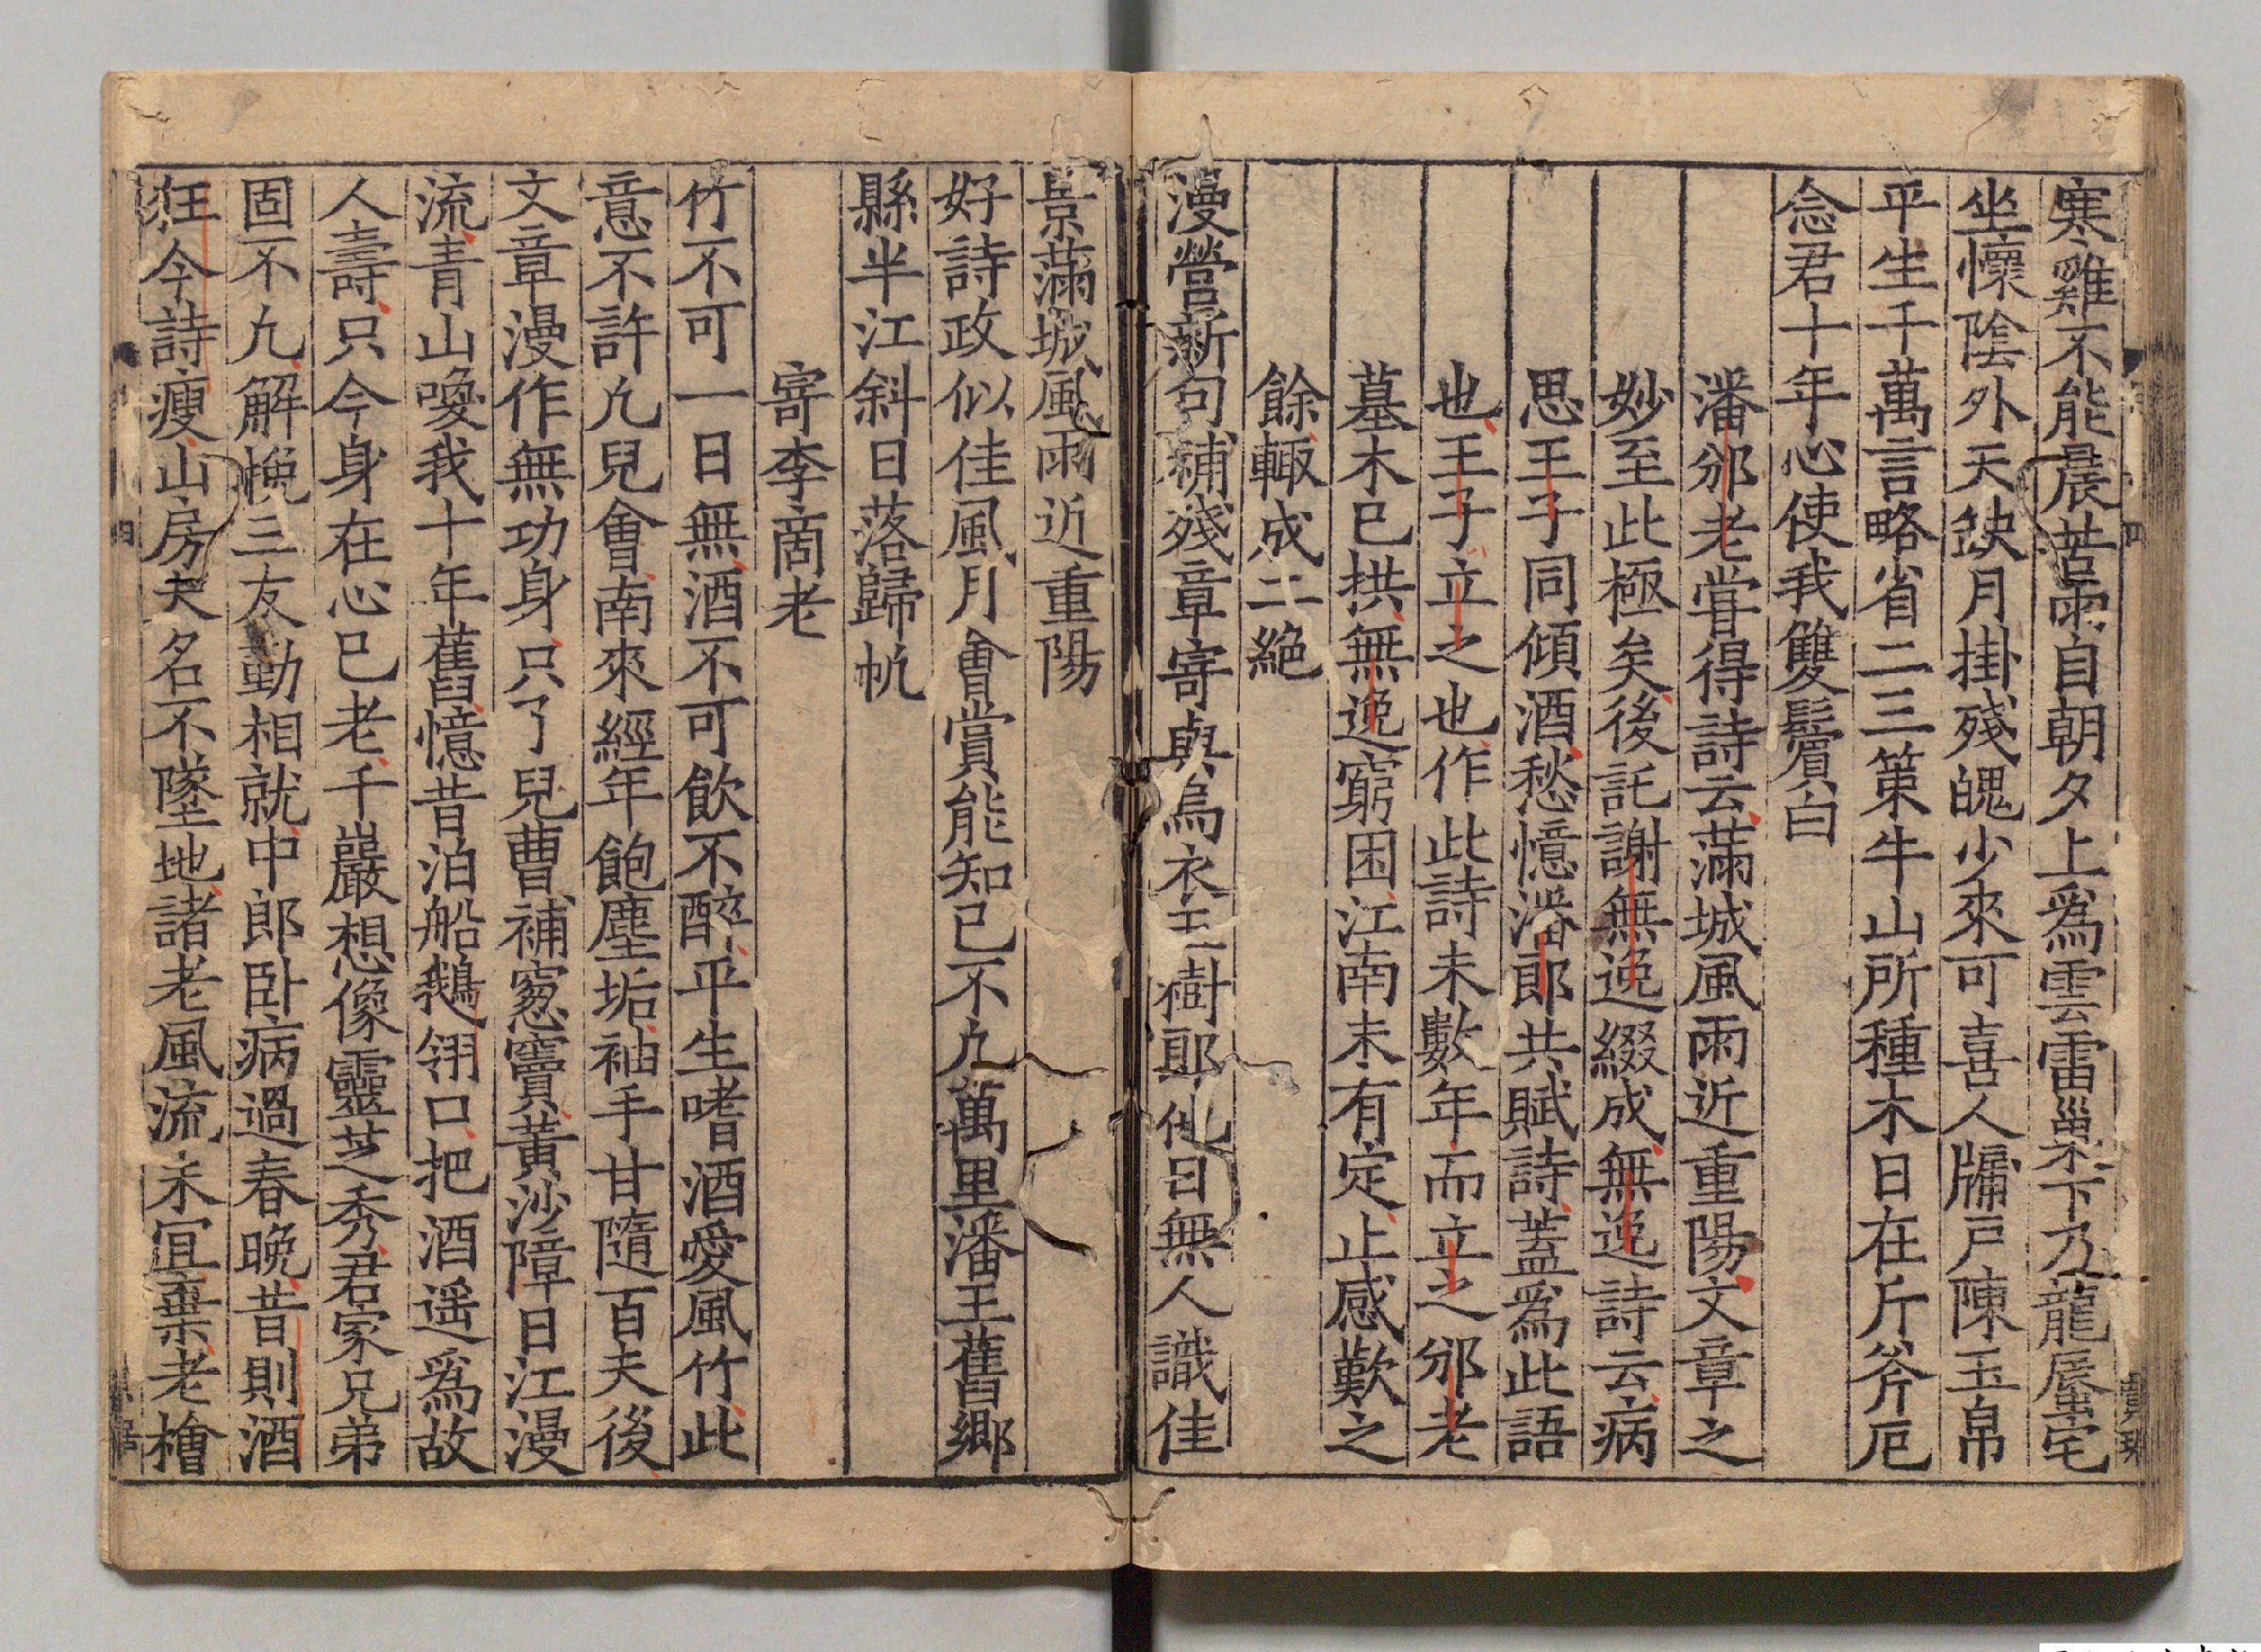 寒雞不能晨苦雨自朝夕上爲雲雷巢下乃龍蜃宅
坐懷陰外天缺月掛殘魄少來可喜人牖戶陳玉帛
平生千萬言略省二三策牛山所種木日在斤斧厄
念君十年心使我雙鬢白
潘邠老嘗得詩云滿城風雨近重陽文章之
妙至此極矣後託謝無逸綴成無逸詩云病
思王子同傾酒愁憶潘郎共賦詩蓋爲此語
也王子立之也作此詩未數年而立之邠老
墓木已拱無逸窮困江南未有定止感歎之
餘輒成二絶
漫營新句補殘章寄與烏衣玉樹郎他日無人識佳
景滿城風雨近重陽
好詩政似佳風月會賞能知已不凢萬里潘王舊鄉
縣半江斜日落歸帆
寄李啇老
竹不可一日無酒不可飲不醉平生嗜酒愛風竹此
意不許凢兒會南來經年飽塵垢袖手甘隨百夫後
文章漫作無功身只了兒曹補窻竇黃沙障日江漫
流青山喚我十年舊憶昔泊船鵝翎口把酒遥爲故
人壽只今身在心已老千巖想像靈芝秀君家兄弟
固不凢解挽三友勤相就中郎卧病過春晚昔則酒
狂今詩瘦山房夫名不墜地諸老風流未宜棄老檜